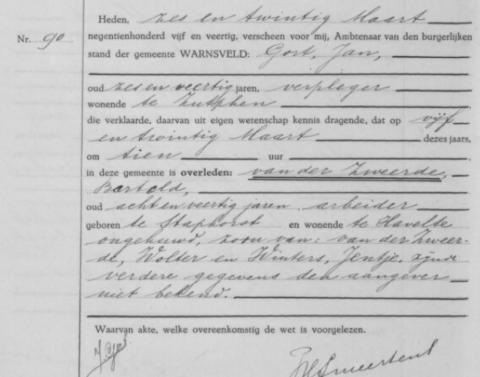 Heden, zes en twintig Maart
Nr. 90 negentienhonderd vijf en veertig, verscheen voor mij, Ambtenaar van den burgerlijken
stand der gemeente WARNSVELD: Gort, Jan,
oud zes en veertig jaren, verpleger
wonende te Zutphen
die verklaarde, daarvan uit eigen wetenschap kennis dragende, dat op vijf
en twintig Maart dezes jaars,
om tien uur
in deze gemeente is overleden: van der Zweerde,
Bartold,
oud acht en veertig jaren, arbeider
geboren te Staphorst en wonende te Havelte
ongehuwd, zoon van: van der Zweer-
de, Wolter en Winters, Jentje, zijnde
verdere gegevens den aangever
niet bekend.
Waarvan akte, welke overeenkomstig de wet is voorgelezen.